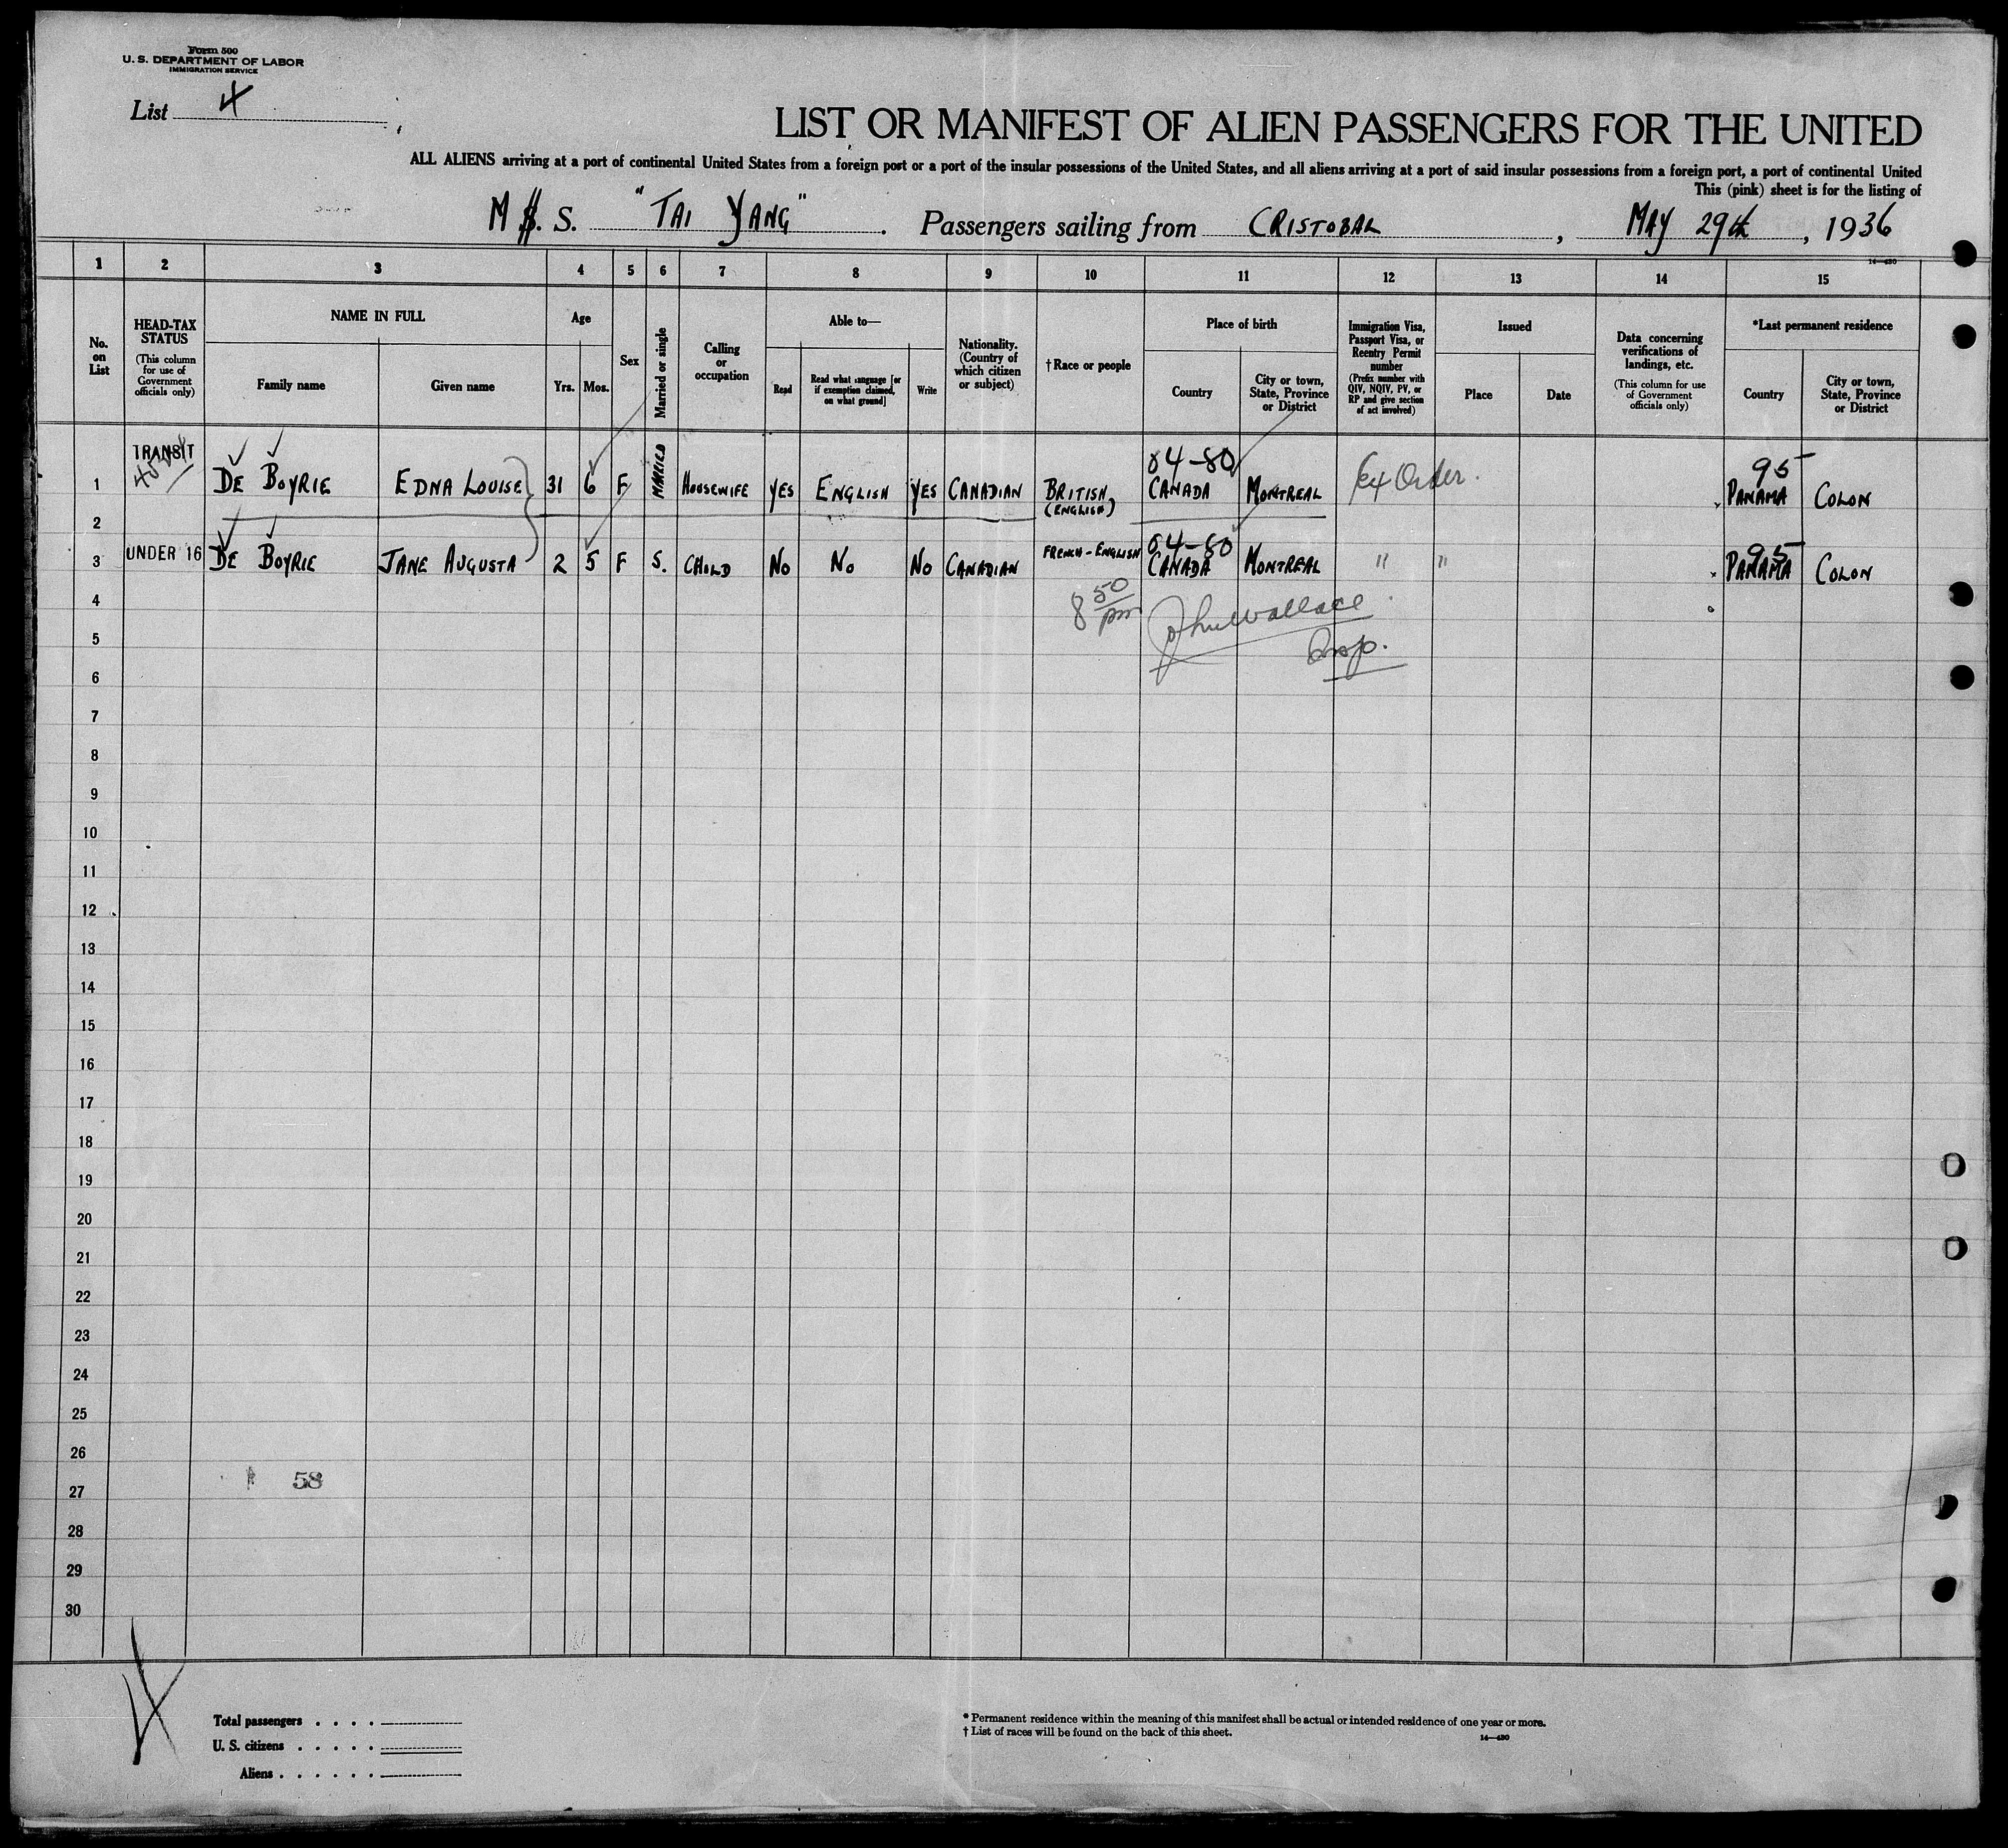 Form 500
U. S. DEPARTMENT OF LABOR
IMMIGRATION SERVICE
List 4
LIST OR MANIFEST OF ALIEN PASSENGERS FOR THE UNITED
ALL ALIENS arriving at a port of continental United States from a foreign port or a port of the insular possessions of the United States, and all aliens arriving at a port of said insular possessions from a foreign port, a port of continental United
This (pink) sheet is for the listing of
M S. S. "TAI YANG". Passengers sailing from CRISTOBAL, MAY 29th, 1936
14—430
1 2 3 4 5 6 7 8 9 10 11 12 13 14 15
No. on List
HEAD-TAX STATUS
(This column for use of Government officials only)
NAME IN FULL
Family name
Given name
Age
Yrs.
Mos.
Sex
Married or single
Calling or occupation
Able to—
Read
Read what language [or if exemption claimed, on what ground]
Write
Nationality. (Country of which citizen or subject)
† Race or people
Place of birth
Country
City or town, State, Province or District
Immigration Visa, Passport Visa, or Reentry Permit number
(Prefix number with QIV, NQIV, PV, or RP and give section of act involved)
Issued
Place
Date
Data concerning verifications of landings, etc.
(This column for use of Government officials only)
*Last permanent residence
Country
City or town, State, Province or District
TRANSIT
04-80 95
1 DE BOYRIE EDNA LOUISE 31 6 F MARRIED HOUSEWIFE YES ENGLISH YES CANADIAN BRITISH (ENGLISH) CANADA MONTREAL Ex Order. PANAMA COLON
2
04-80 95
3 UNDER 16 DE BOYRIE JANE AUGUSTA 2 5 F S. CHILD NO NO NO CANADIAN FRENCH-ENGLISH CANADA MONTREAL " " PANAMA COLON
4
8 50 pm John Wallace
5
Insp.
6
7
8
9
10
11
12
13
14
15
16
17
18
19
20
21
22
23
24
25
26
58
27
28
29
30
4
Total passengers . . . .
U. S. citizens . . . . .
Aliens . . . . . .
* Permanent residence within the meaning of this manifest shall be actual or intended residence of one year or more.
† List of races will be found on the back of this sheet.
14—430